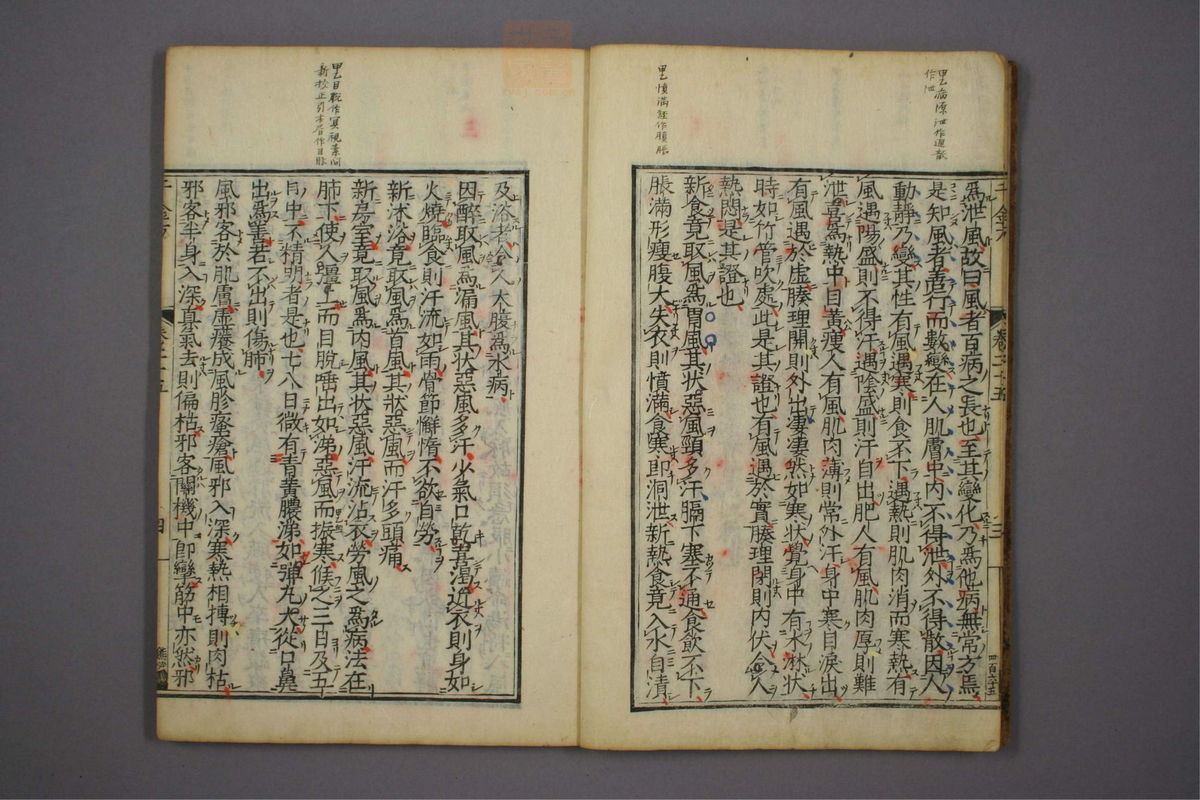 甲乙病源泄作洩散
作泄
甲乙憤滿經作䐜脹
為泄風故曰風者百病之長也至其變化乃為他病無常方焉
是知風者善行而數變在人肌膚中内不得泄外不得散因人
動靜乃變其性有風遇寒則食不下遇熱則肌肉消而寒熱有
風遇陽盛則不得汗遇陰盛則汗自出肥人有風肌肉厚則難
泄喜為熱中目黃瘦人有風肌肉薄則常外汗身中寒目淚出
有風遇於虛腠理開則外出凄凄然如寒狀覺身中有水淋狀
時如竹管吹處此是其證也有風遇於實腠理閉則内伏令人
熱悶是其證也
新食竟取風為胃風其狀惡風頸多汗膈下塞不通食飲不下
脹滿形瘦腹大失衣則憤滿食寒即洞泄新熱食竟入水自漬
卷二十五
三
四百六十五
甲乙目脫作冥視素問
新校正引本省作目脉
及浴者令人大腹為水病
因醉取風為漏風其狀惡風多汗少氣口乾善渴近衣則身如
火燒臨食則汗流如雨骨節懈惰不欲自勞
新沐浴竟取風為首風其狀惡風而汗多頭痛
新房室竟取風為内風其狀惡風汗流沾衣勞風之為病法在
肺下使人彊上而目脫唾出如涕惡風而振寒候之三日及五
日中不精明者是也七八日微有青黃膿涕如彈丸大從口鼻
出為善若不出則傷肺
風邪客於肌膚虛癢成風疹瘙瘡風邪入深寒熱相搏則肉枯
邪客半身入深真氣去則偏枯邪客關機中即攣筋中亦然邪
四